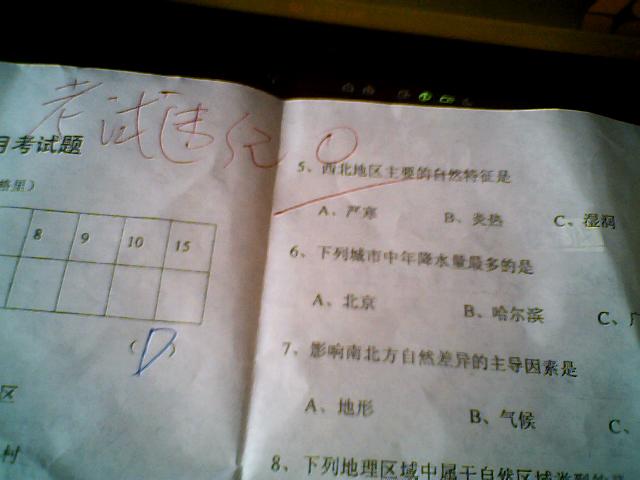 考试违纪 0
月考试题
格里）
8 9 10 15
(D)
区
村
5、西北地区主要的自然特征是
A、严寒 B、炎热 C、湿润
6、下列城市中年降水量最多的是
A、北京 B、哈尔滨 C、
7、影响南北方自然差异的主导因素是
A、地形 B、气候 C、
8、下列地理区域中属于自然区域类型的是